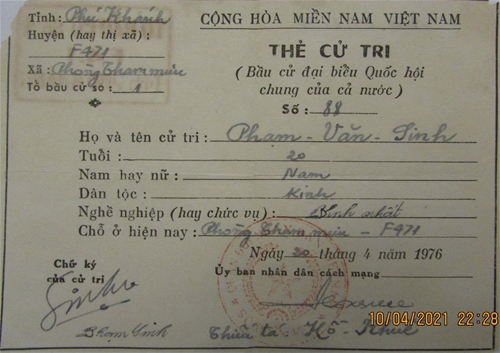 Tỉnh: Phú Khánh
Huyện (hay thị xã):
F471
Xã: Phòng Tham mưu
Tổ bầu cử số: 1
CỘNG HÒA MIỀN NAM VIỆT NAM
THẺ CỬ TRI
(Bầu cử đại biểu Quốc hội
chung của cả nước)
Số: 88
Họ và tên cử tri: Phạm - Văn - Sinh
Tuổi: 20
Nam hay nữ: Nam
Dân tộc: Kinh
Nghề nghiệp (hay chức vụ): Binh nhất
Chỗ ở hiện nay: Phòng Tham mưu - F471
Ngày 20 tháng 4 năm 1976
Chữ ký
của cử tri
Ủy ban nhân dân cách mạng
Phạm Sinh
Thiếu tá Hồ - Khuê
10/04/2021 22:28